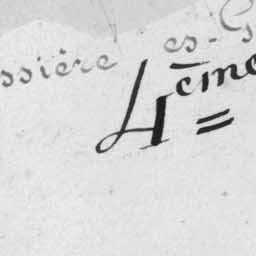 ssière es-G
4ème